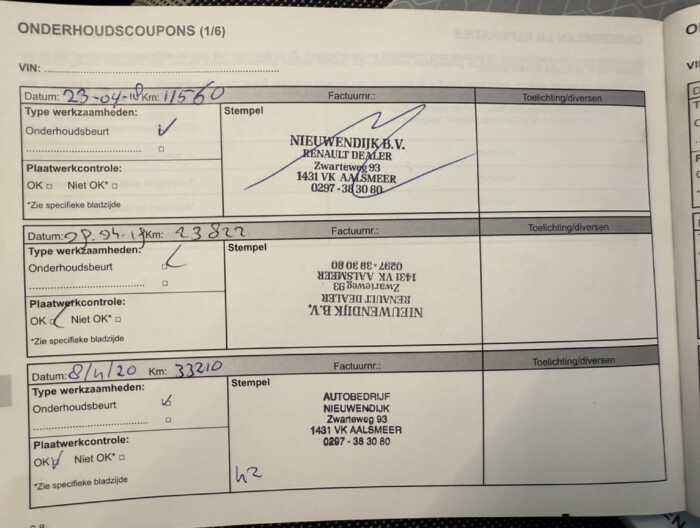 ONDERHOUDSCOUPONS (1/6)
VIN:
Datum: 23-04-18 Km: 11560 Factuurnr.: Toelichting/diversen
Type werkzaamheden:
Stempel
Onderhoudsbeurt
NIEUWENDIJK B.V.
RENAULT DEALER
Zwarteweg 93
1431 VK AALSMEER
0297-38 30 80
Plaatwerkcontrole:
OK Niet OK*
*Zie specifieke bladzijde
Datum: 09-04-19 Km: 23822 Factuurnr.: Toelichting/diversen
Type werkzaamheden:
Stempel
Onderhoudsbeurt
NIEUWENDIJK B.V.
RENAULT DEALER
Zwarteweg 93
1431 VK AALSMEER
0297-38 30 80
Plaatwerkcontrole:
OK Niet OK*
*Zie specifieke bladzijde
Datum: 8/4/20 Km: 33210 Factuurnr.: Toelichting/diversen
Type werkzaamheden:
Stempel
Onderhoudsbeurt
AUTOBEDRIJF
NIEUWENDIJK
Zwarteweg 93
1431 VK AALSMEER
0297-38 30 80
Plaatwerkcontrole:
OK Niet OK*
*Zie specifieke bladzijde